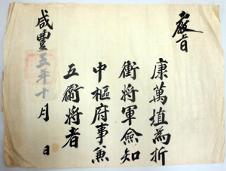 教旨
康萬植為折
衝將軍僉知
中樞府事兼
五衛將者
咸豐五年十月　日